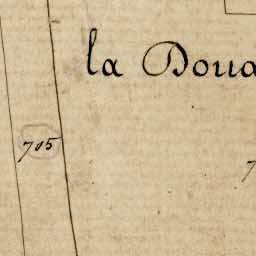 la Doua
705
7